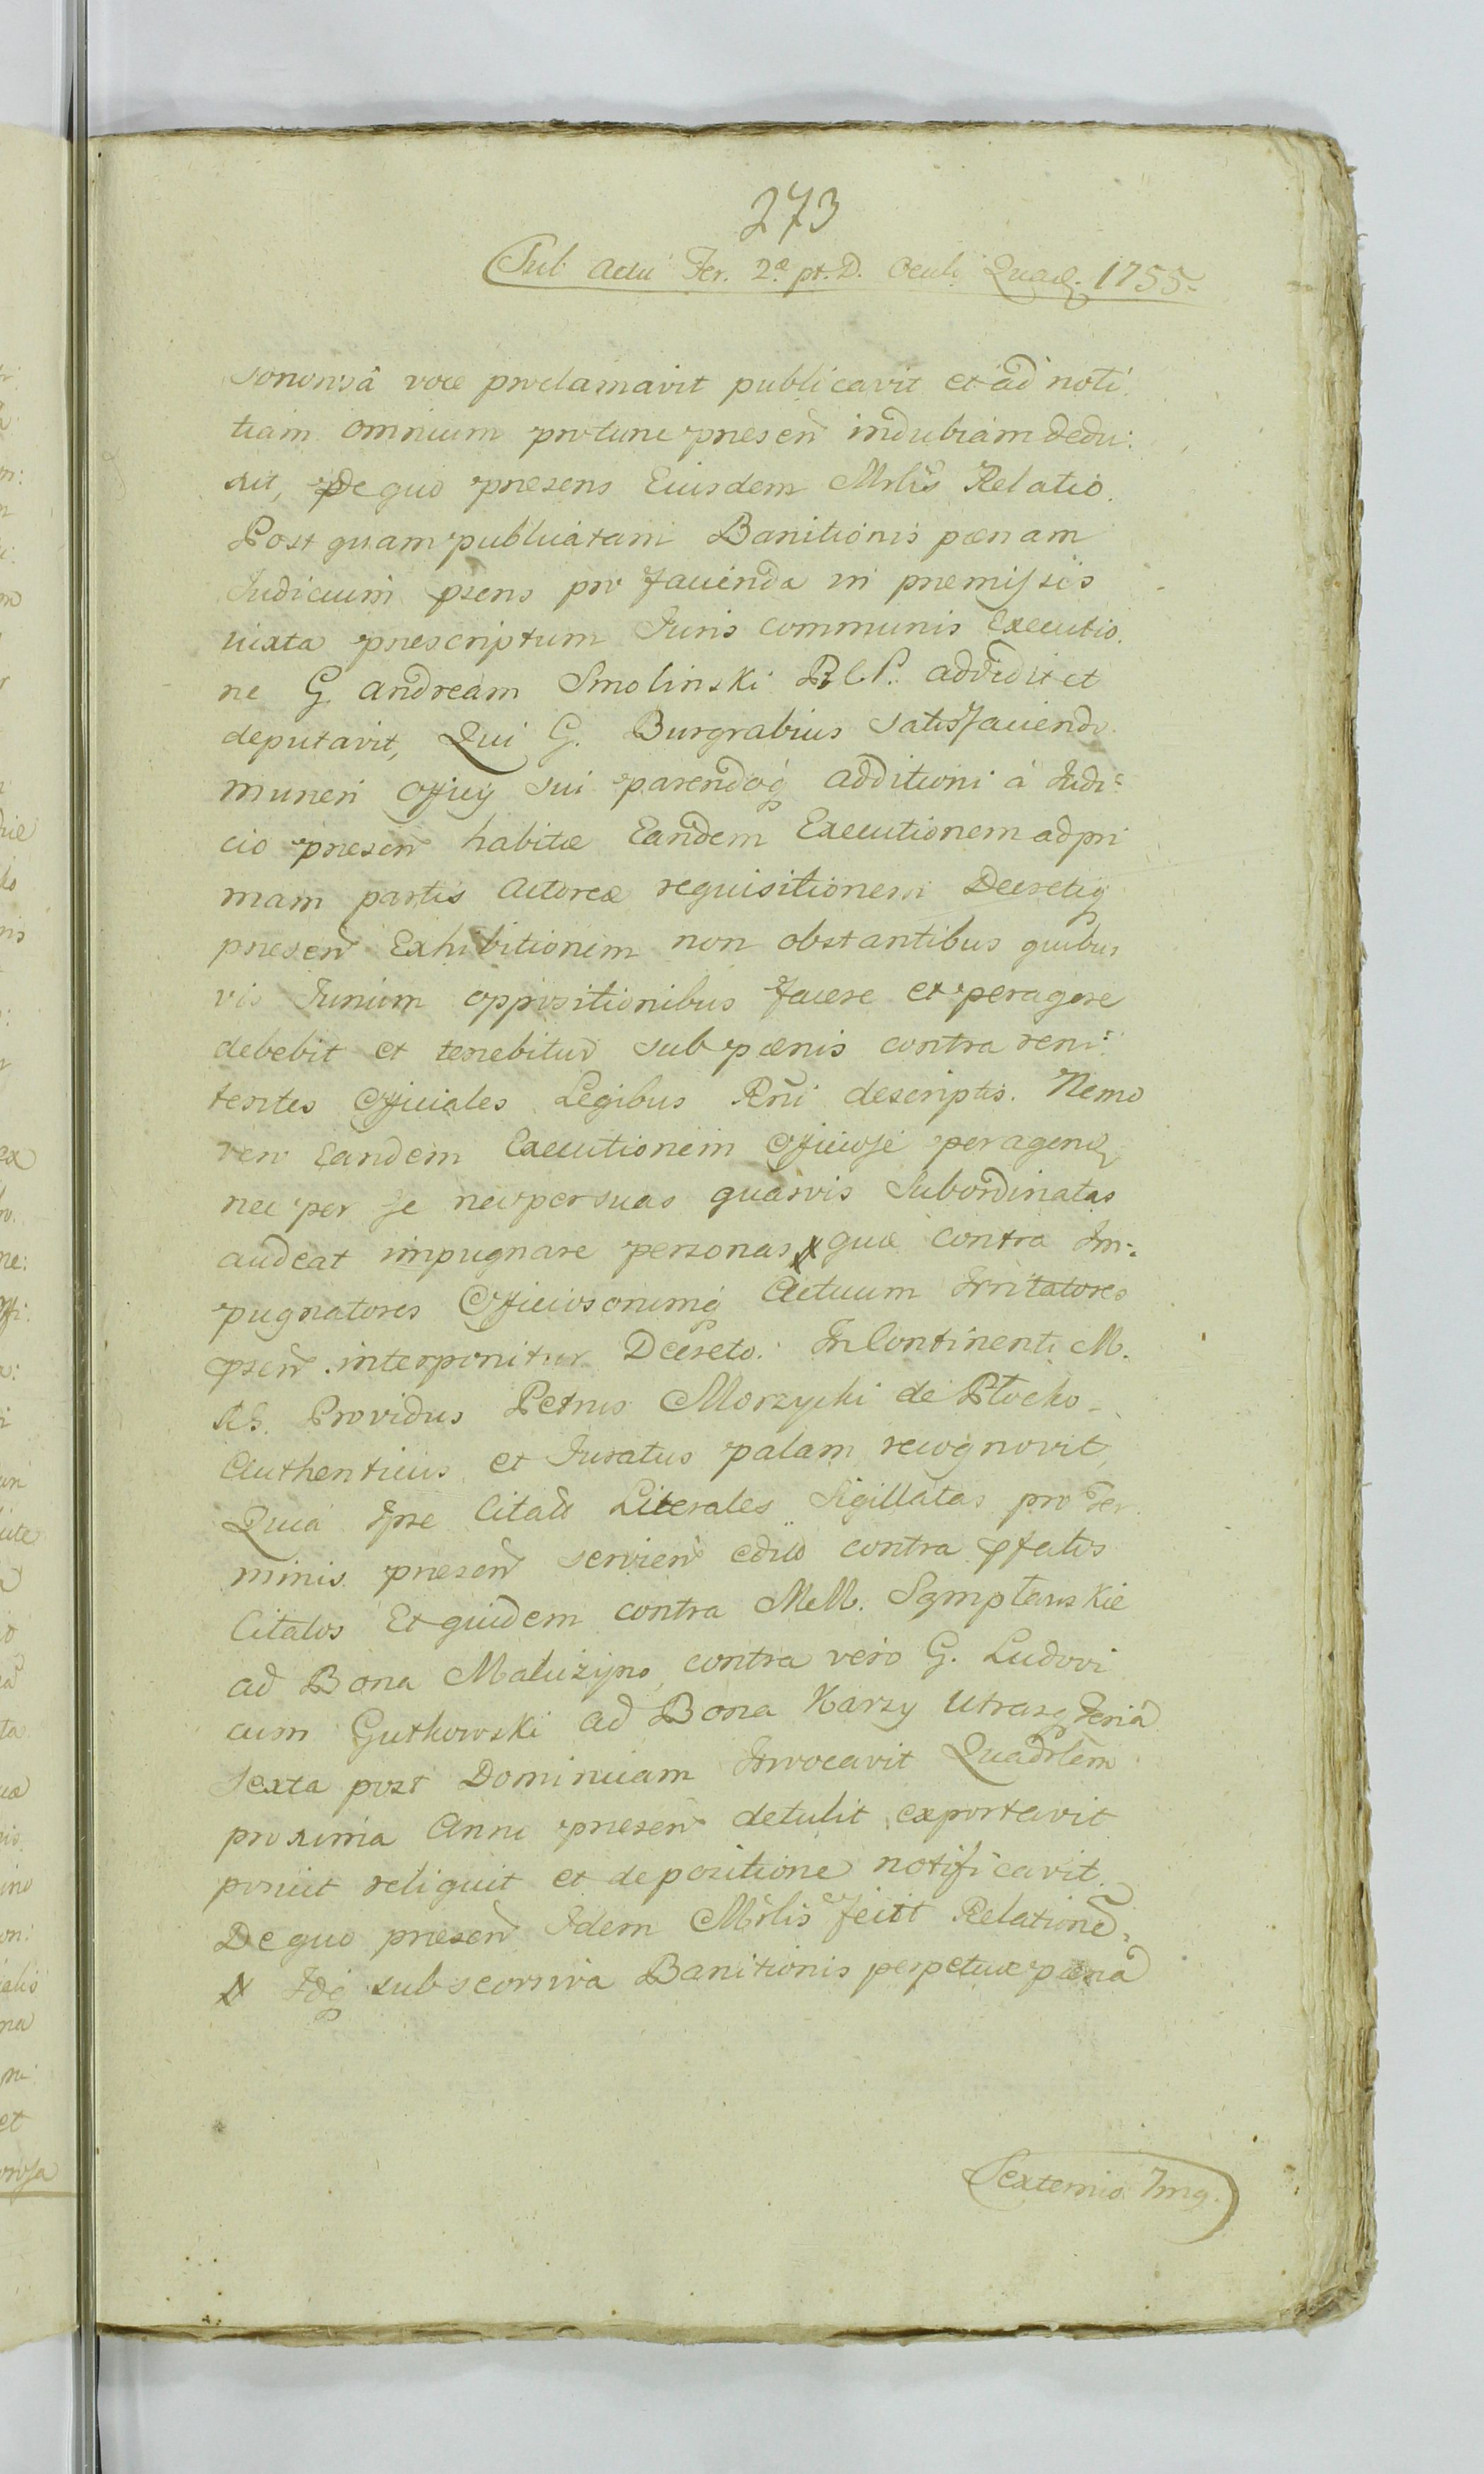 273
Sub Actu Fer. 2ã pt. D. Oculi Quad. 1755
sonorosâ voce proclamavit publicavit et ad noti:
tiam omnium pro tunc præsen indubiam dedu:
xit, De quo præsens Eiusdem Mrlis Relatio.
Post quam publicatam Banitionis pænam
Iudicium psens pro facienda in præmissis
iuxta præscriptum Iuris communis Executio.
ne G Andream Smolinski B. C. P. addidit et
deputavit, Qui G. Burgrabius satisfaciendo
muneri Officij sui parendoq additioni à Iudi:
cio præsen habitæ Eandem Executionem ad pri
mam partis Actoreæ requisitionem Decretiq
præsen Exhibitionem non obstantibus quibus
vis Iurium oppositionibus facere et peragere
debebit et tenebitur sub pænis contra reni:
tentes Officiales Legibus Rni descriptis. Nemo
vero Eandem Executionem Officiose peragend
nec per se nec per suas quasvis Subordinatas
audeat impugnare personas x quæ contra Im:
pugnatores Officiosorumq Actuum Irritatores
psen interponitur Decreto. In Continenti M.
Rg. Providus Petrus Morzycki de Płocko
Authenticus et Iuratus palam recognovit,
Quia Ipse Citaõ Literales Sigillatas pro Ter
minis præsen servien edito contra pfatos
Citatos Et quidem contra MM. Sgmpławskie
ad Bona Maluzyno, contra vero G. Ludovi
cum Gutkowski ad Bona Karzy Utrasq Feria
Sexta post Dominicam Invocavit Quadrlem
proxima Anni præsen detulit exportavit
posuit reliquit et depositione notificavit.
De quo præsen Idem Mrlis fecit Relatione.
x Idq sub scorsiva Banitionis perpetuæ pæna
Sexternio Img.